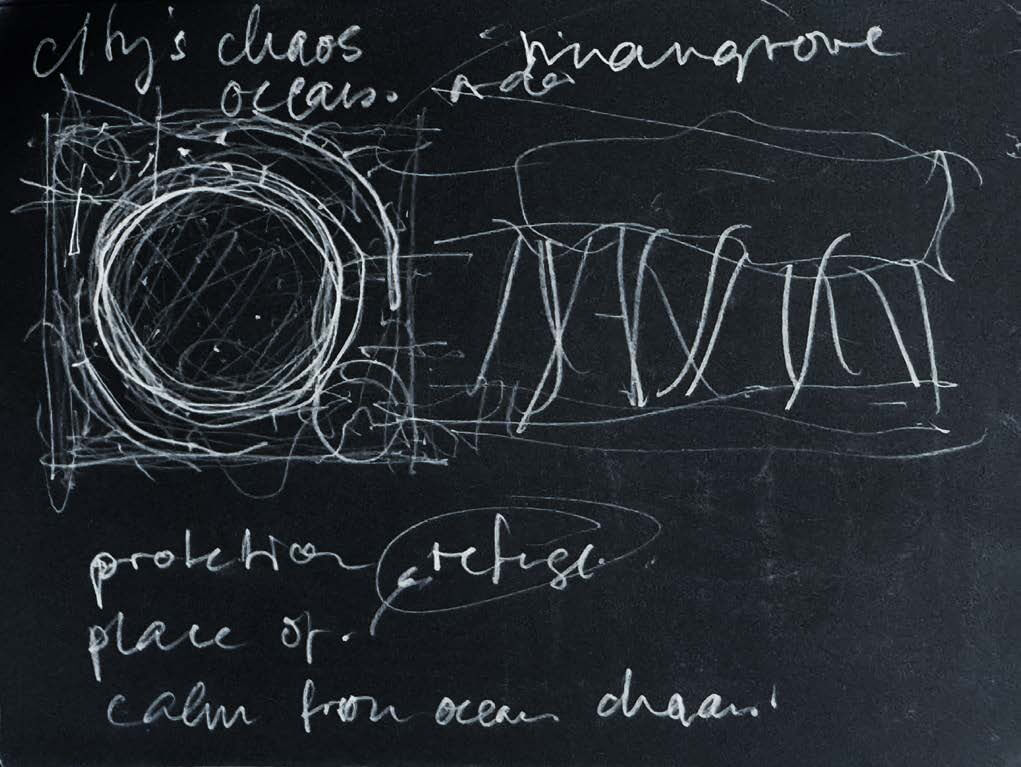 city's chaos
ocean.
mangrove
protection refuge.
place of.
calm from ocean chaos!